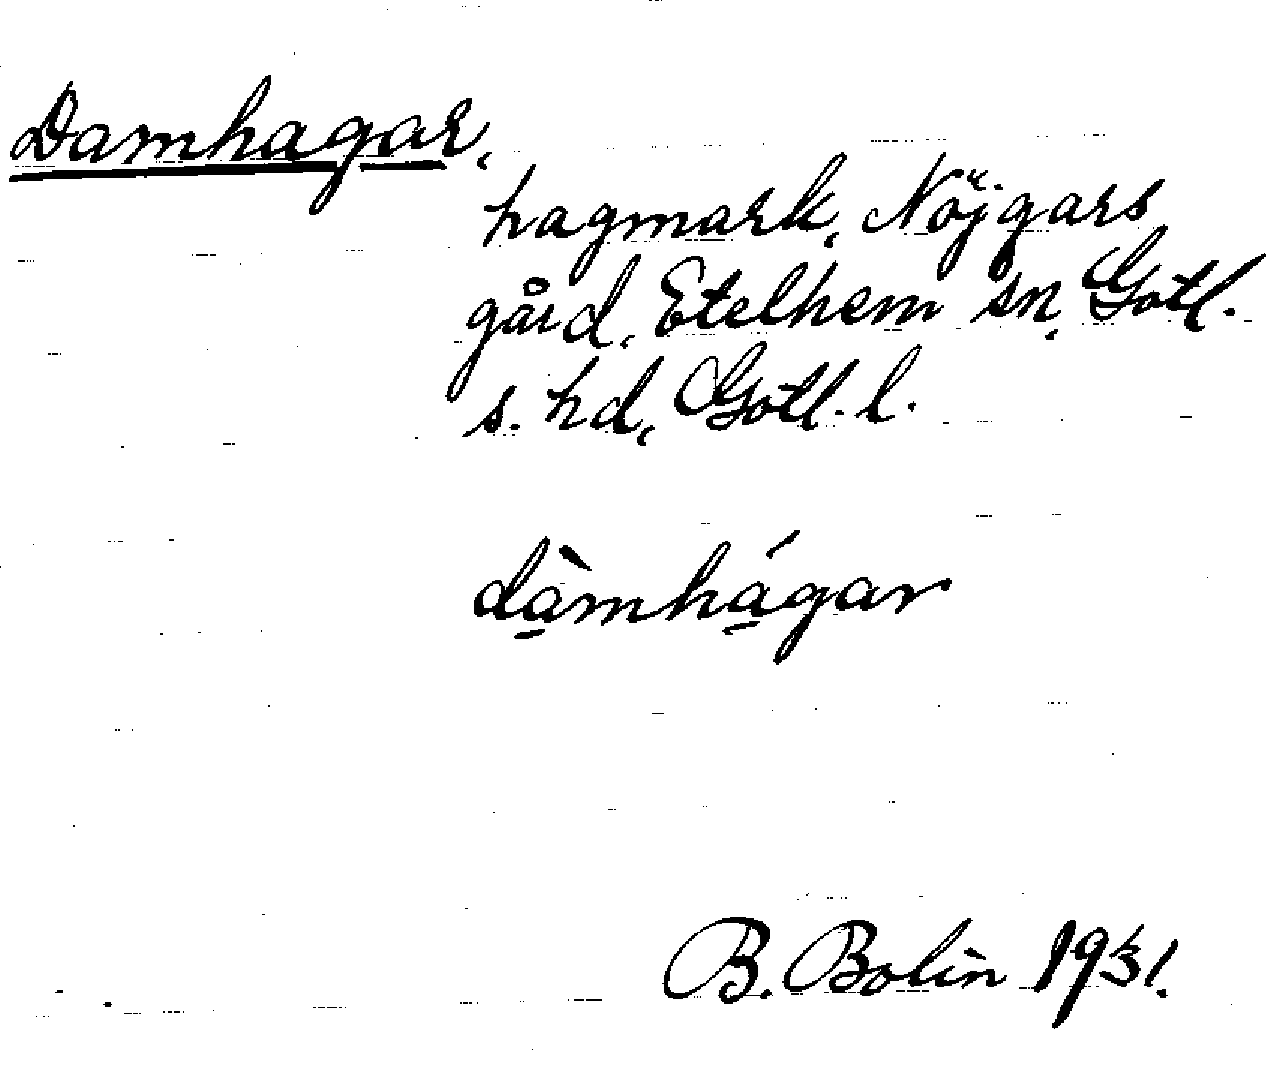 Damhagar,
hagmark, Nöjgars
gård, Etelhem sn, Gotl.
s. hd, Gotl. l.
dà̱mhá̱gar
B. Bolin 1931.